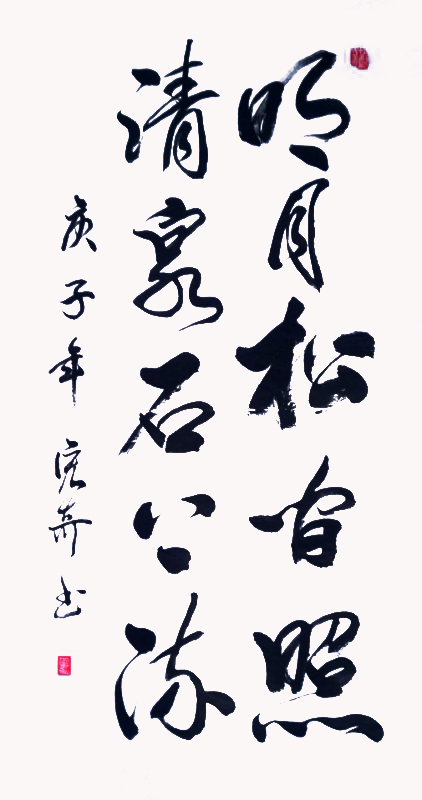 明月松间照
清泉石上流
庚子年书